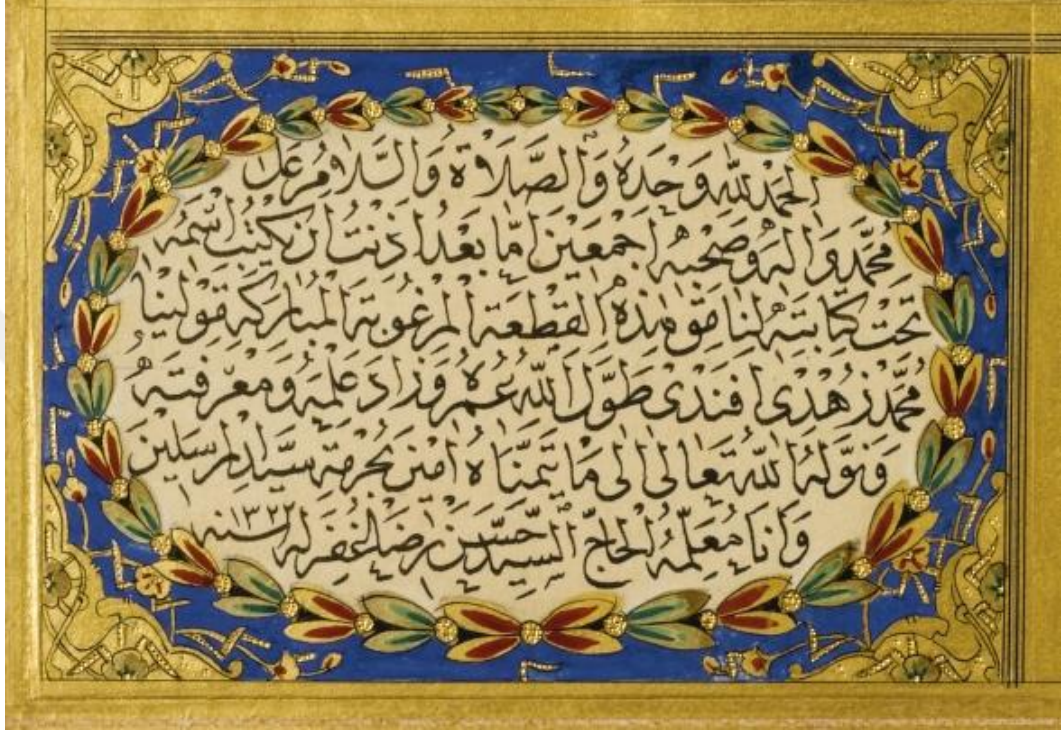 الحمد لله وحده والصلاة والسلام على
محمد واله وصحبه اجمعين اما بعد اذنت ان يكتب اسمه
تحت كتابته لنا مق هذه القطعة المرغوبة المباركة
محمد زهدى افندى طول الله عمره وزاد علمه ومعرفته
ونوله الله تعالى الى ما يتمناه امين بحرمة سيد المرسلين
وانا معلمه الحاج السيد حسن رضا غفر له سنه ١٣٢٢